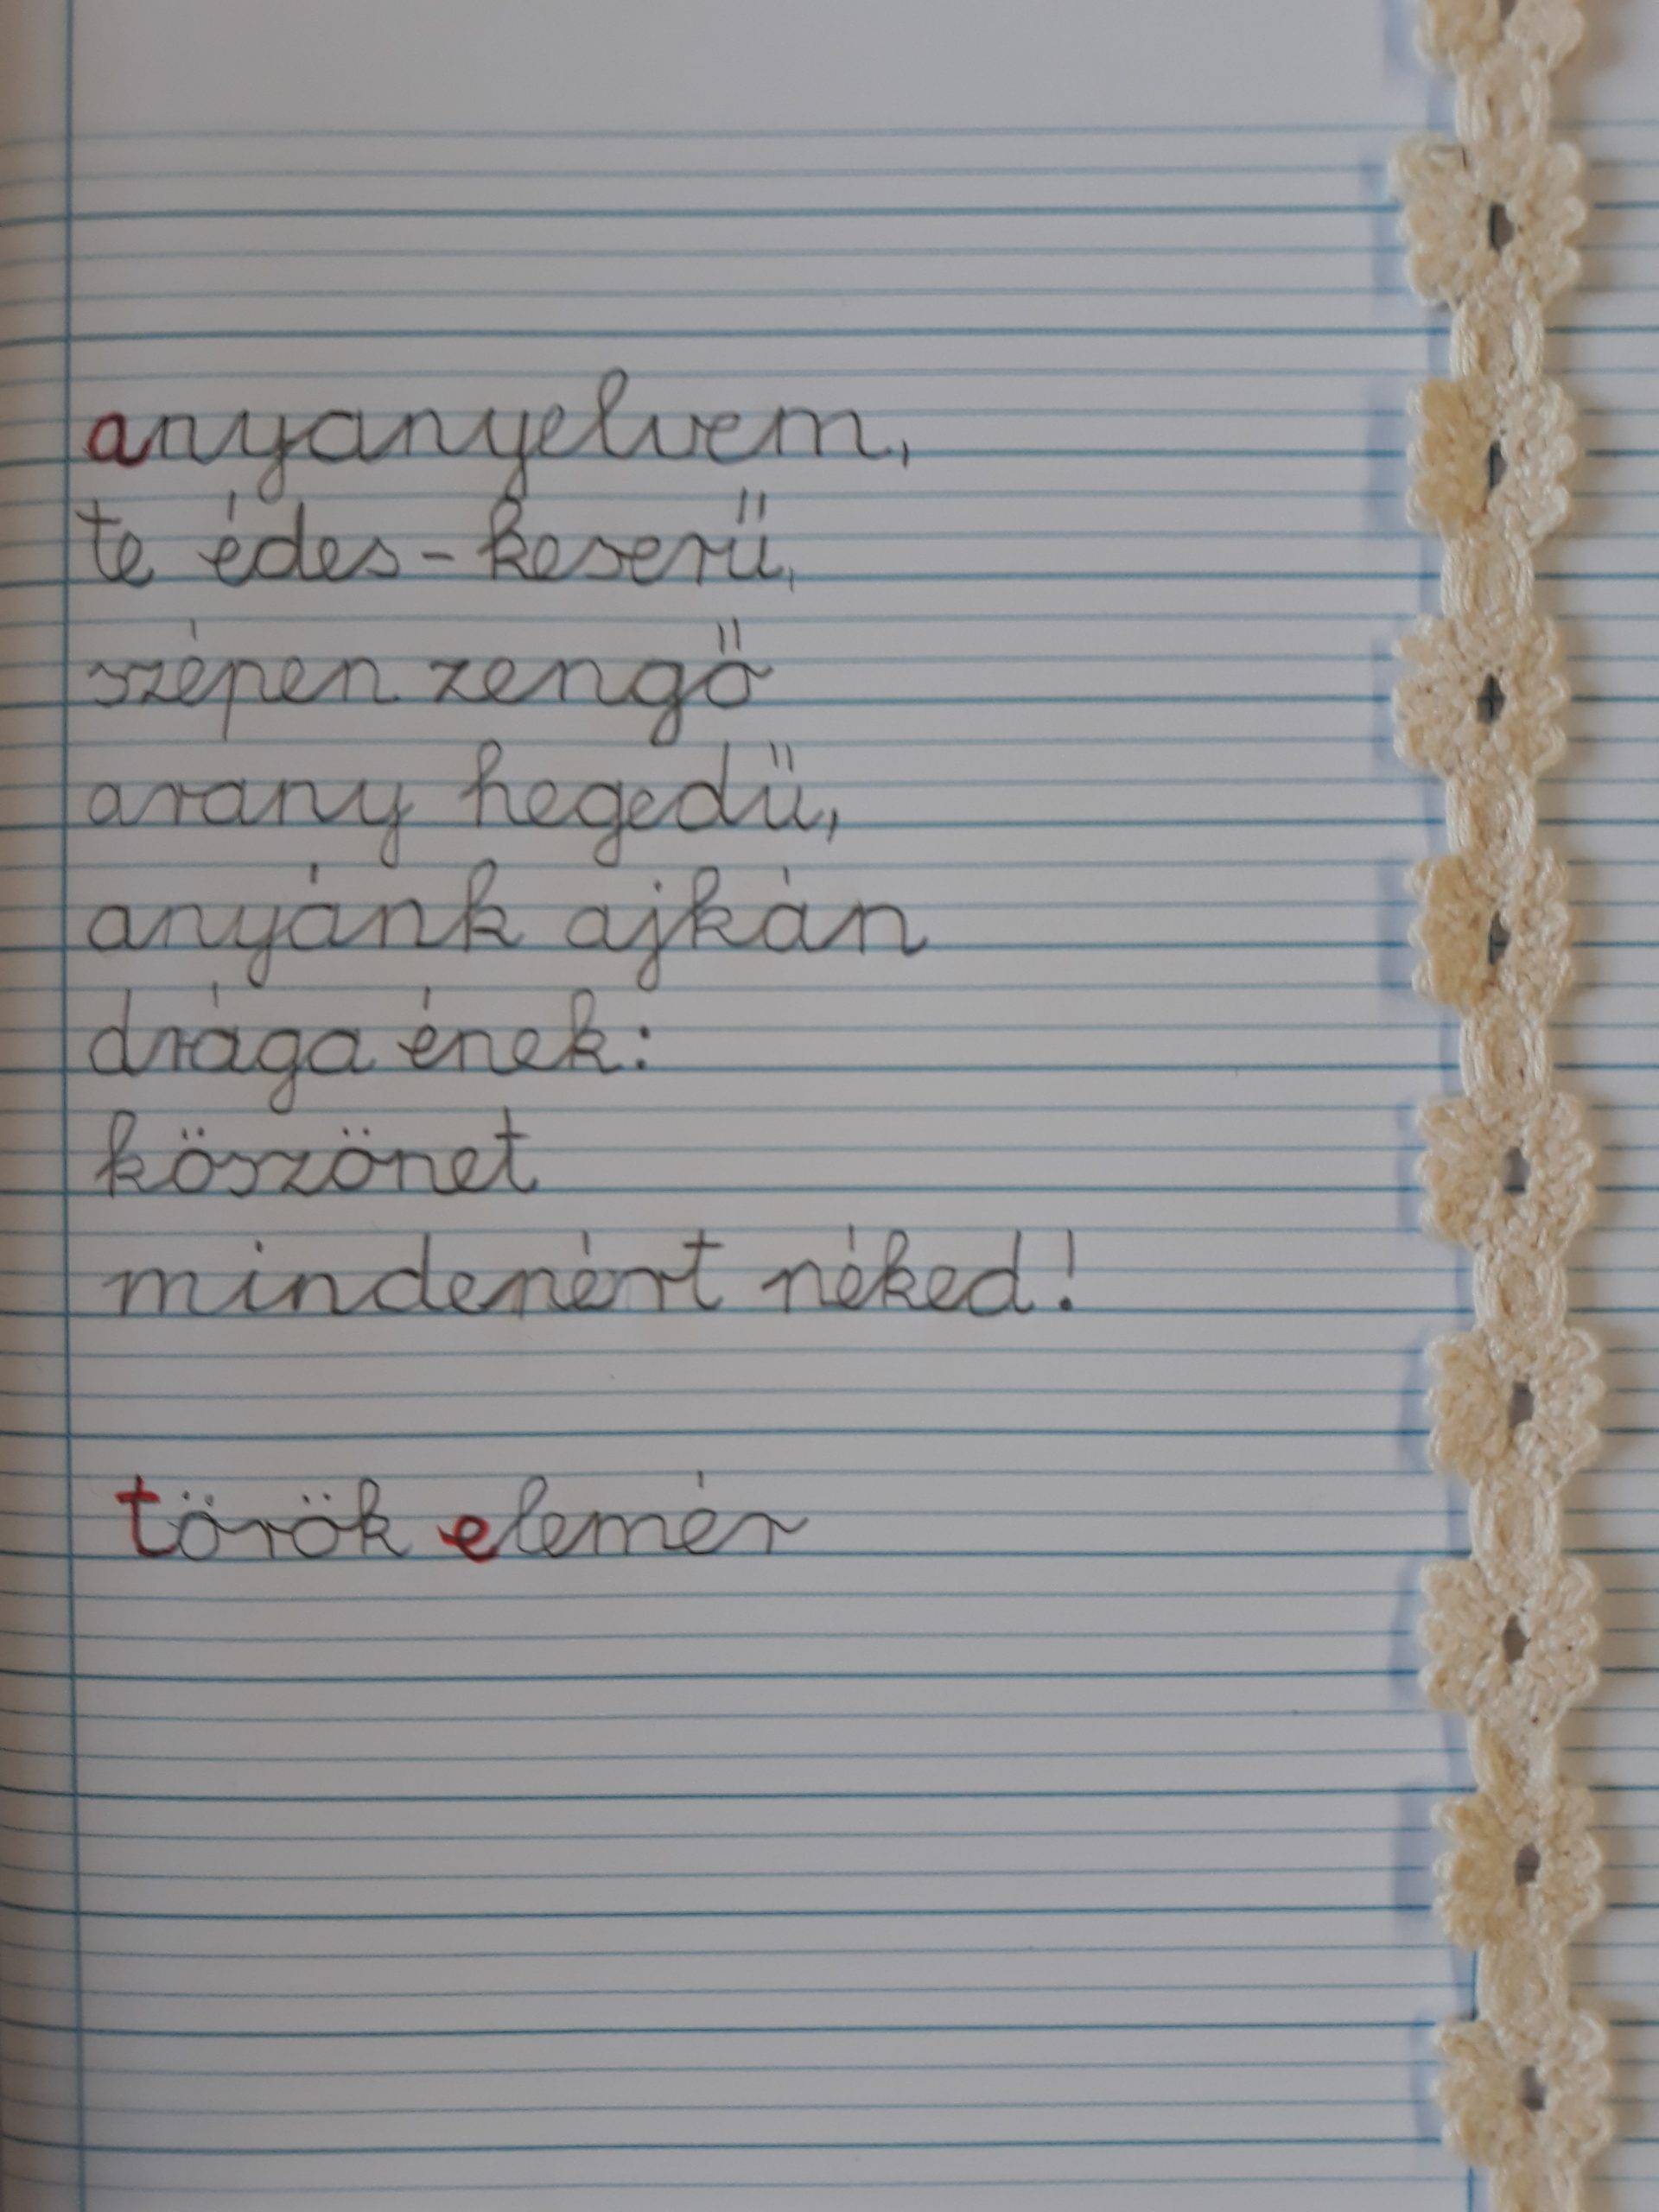 anyanyelvem,
te édes-keserű,
szépen zengő
arany hegedű,
anyánk ajkán
drága ének:
köszönet
mindenért néked!
török elemér